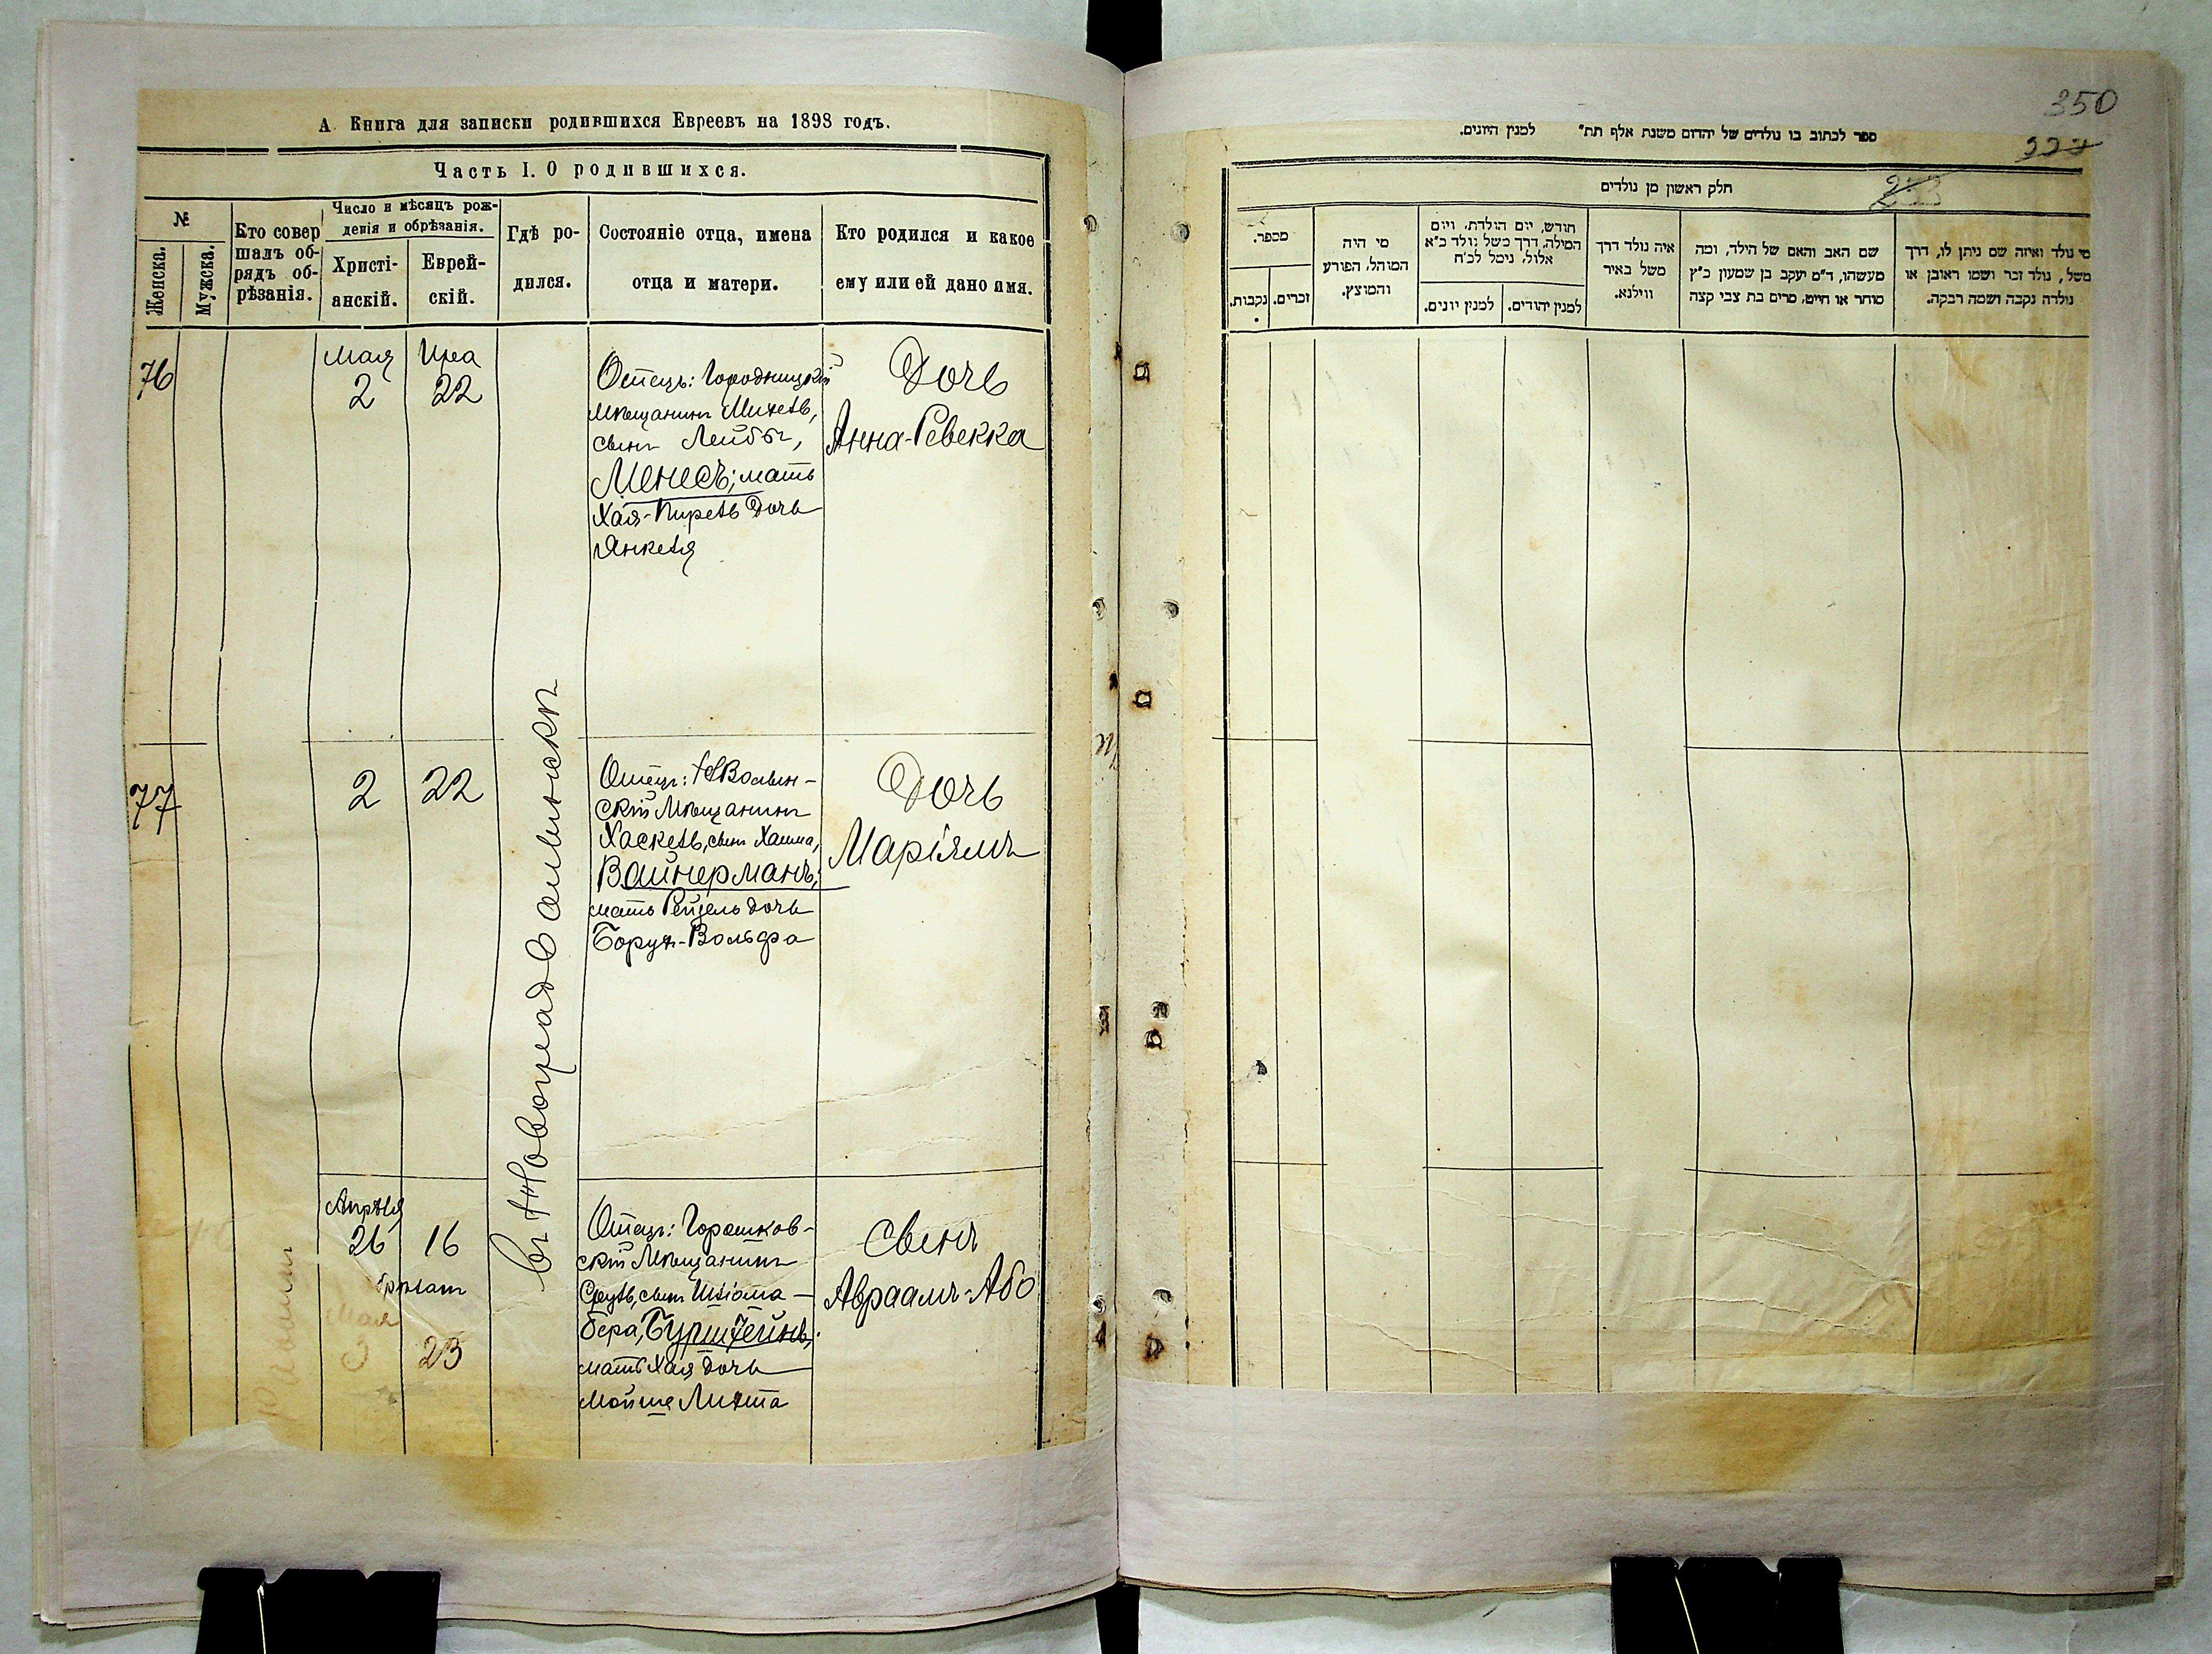 А. Книга для записки родившихся Евреевъ на 1898 годъ.
Часть I. О родившихся.
№
Женска.
Мужска.
Кто совер
шалъ об-
рядъ об-
рѣзанія.
Число и мѣсяцъ рож-
денія и обрѣзанія.
Христі-
анскій.
Еврей-
скій.
Гдѣ ро-
дился.
Состояніе отца, имена
отца и матери.
Кто родился и какое
ему или ей дано имя.
76
Мая
2
Ияра
22
Отецъ: Городницкій
мѣщанинъ Михель,
сынъ Лейбы,
Менесъ; мать
Хая-Пирель дочь
Янкеля
Дочь
Анна-Ревекка
77
2
22
Отецъ: НВолын-
скій Мѣщанинъ
Хаскель, сынъ Хаима,
Вайнерманъ;
мать Рейзель дочь
Борух-Вольфа
Дочь
Маріямъ
въ Новоградволынскѣ
Апрѣля
26
16
обрѣзат
Мая
3
23
Отецъ: Горошков-
скій Мѣщанинъ
Сруль, сынъ Шліома-
бера, Бурштейнъ;
мать Хая дочь
Мойше Липта
Сынъ
Авраамъ-Або
350
227
ספר לכתוב בו נולדים של יהדים משנת אלף תת״ למנין היונים.
חלק ראשון מן נולדים
מספר.
נקבות.
זכרים.
מי היה
המוהל, הפורע
והמוצץ.
חודש, יום הולדת, ויום
המילה, דרך משל נולד כ״א
אלול, נימל לכ״ח
למנין יונים.
למנין יהודים.
איה נולד דרך
משל באיר
ווילנא.
שם האב והאם של הילד, ומה
מעשהו, ד״מ יעקב בן שמעון כ״ץ
סוחר או חייט, מרים בת צבי קצה
מי נולד ואיזה שם ניתן לו, דרך
משל, נולד זכר ושמו ראובן או
נולדה נקבה ושמה רבקה.